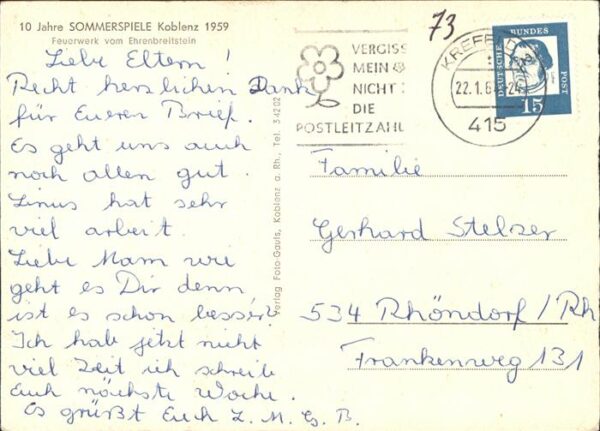 10 Jahre SOMMERSPIELE Koblenz 1959
Feuerwerk vom Ehrenbreitstein
Liebe Eltern!
Recht herzlichen Dank
für Eueren Brief.
Es geht uns auch
noch allen gut.
Linus hat sehr
viel arbeit.
Liebe Mam wie
geht es Dir denn
ist es schon besser?
Ich hab jetzt nicht
viel Zeit ich schreibe
Euch nächste Woche.
Es grüßt Euch L. M. G. B.
Verlag Foto Gauls, Koblenz a. Rh., Tel. 34202
73
VERGISS
MEIN
NICHT
DIE
POSTLEITZAHL
KREFELD
22.1.6
415
DEUTSCHE BUNDES POST
15
Familie
Gerhard Stelzer
534 Rhöndorf/Rh
Frankenweg 131